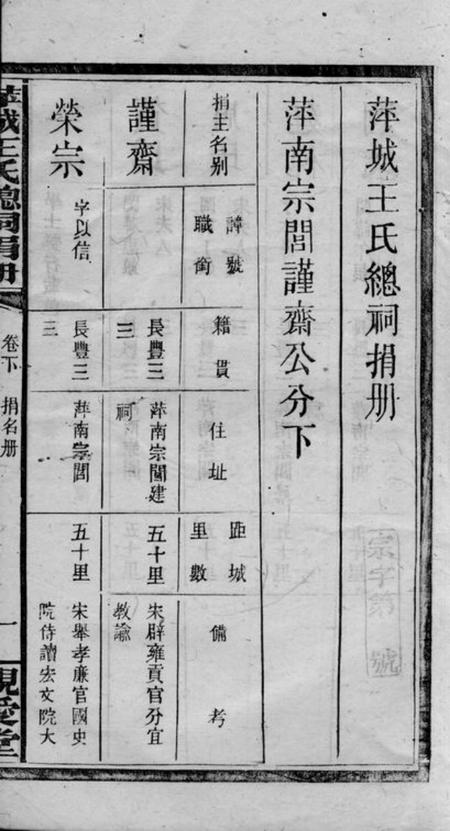 萍城王氏總祠捐册
宗字第 號
萍南宗閭謹齋公分下
捐主名别 諱號 職銜 籍貫 住址 距城 里數 備考
謹齋 長豐三三 萍南宗閭建祠 五十里 宋辟雍貢官分宜教諭
榮宗 字以信 長豐三三 萍南宗閭 五十里 宋舉孝廉官國史院侍讀宏文院大
萍城王氏總祠捐册 卷下 捐名册 一 親愛堂